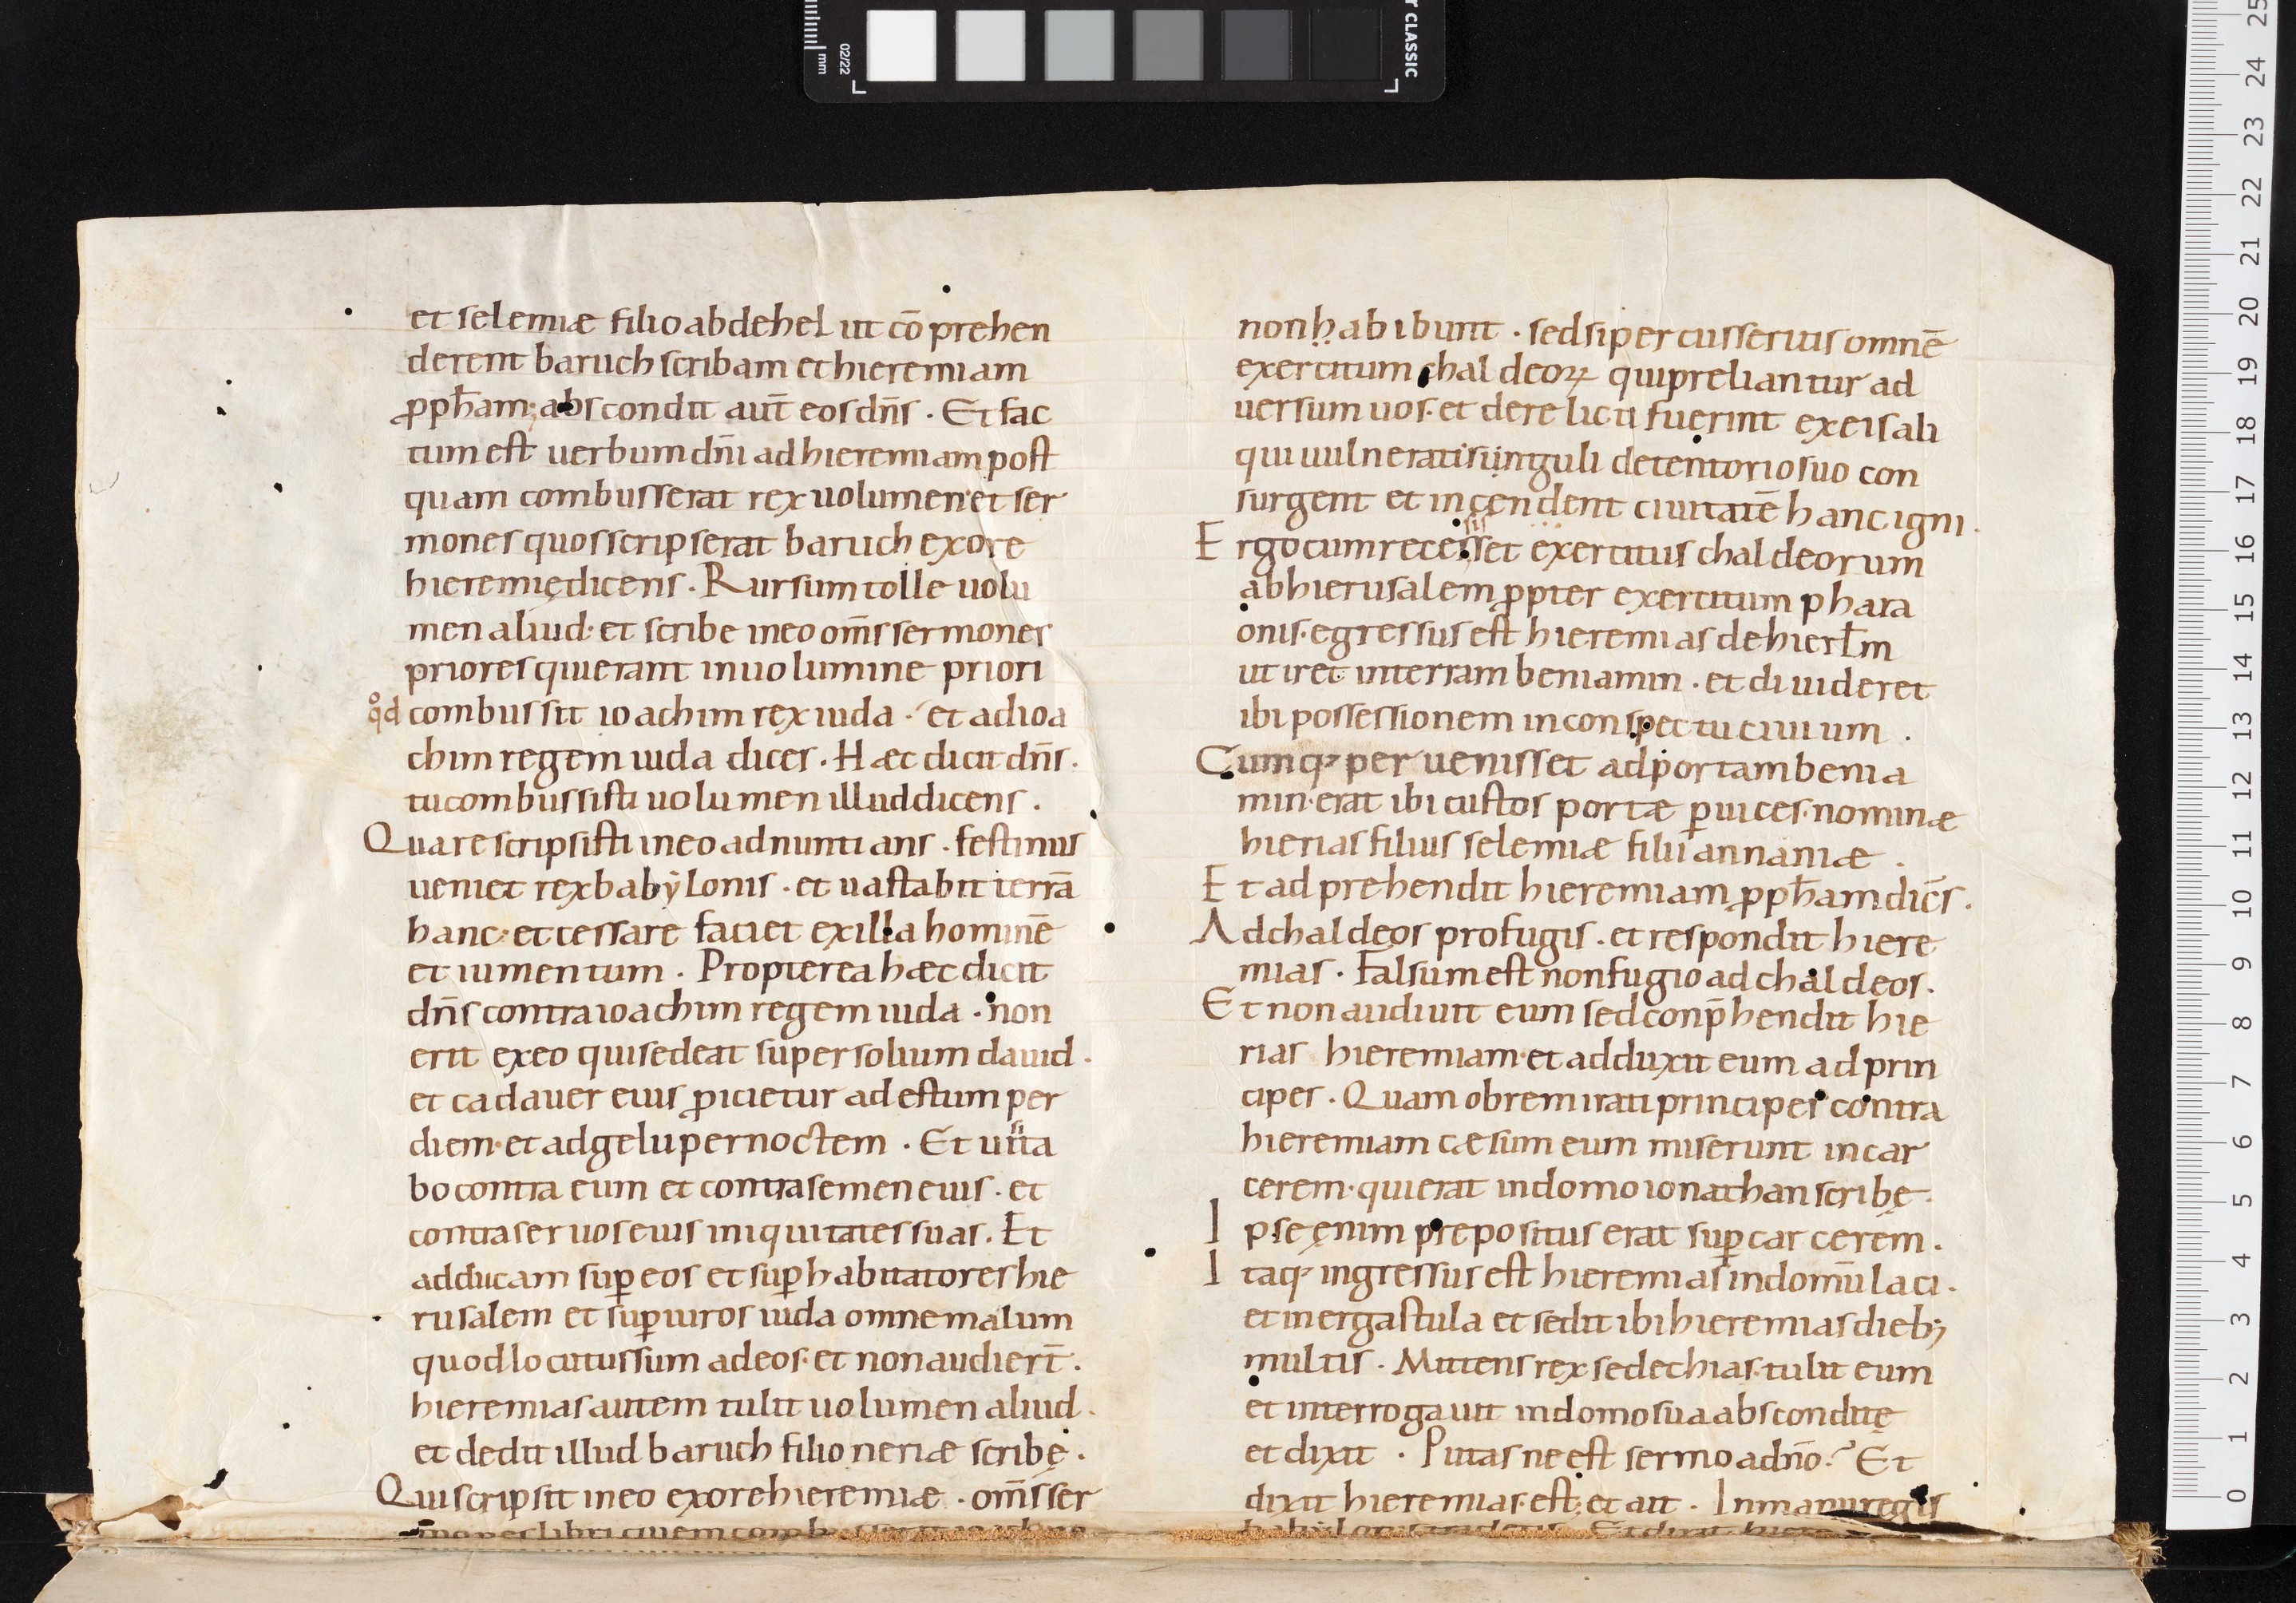 et selemiæ filio abdehel ut cō prehen
derent baruch scribam et hieremiam
ꝓph̄am; abscondit aut̄ eos dn̄s. Et fac
tum est uerbum dn̄i ad hieremiam post
quam combusserat rex uolumen et ser
mones quos scripserat baruch ex ore
hieremię dicens. Rursum tolle uolu
men aliud. et scribe in eo om̄s sermones
priores qui erant in uolumine priori
qd combussit ioachim rex iuda. et ad ioa
chim regem iuda dices. Hæc dicit dn̄s.
tu combussisti uolumen illud dicens.
Quare scripsisti in eo adnuntians. festinus
ueniet rex babẏlonis. et uastabit terrā
hanc; et cessare faciet ex illa hominē
et iumentum. Propterea hæc dicit
dn̄s contra ioachim regem iuda. non
erit ex eo qui sedeat super solium dauid.
et cadauer eius ꝓicietur ad estum per
diem. et ad gelu per noctem. Et uisita
bo contra eum et contra semen eius. et
contra seruos eius iniquitates suas. Et
adducam suꝑ eos et suꝑ habitatores hie
rusalem et suꝑ uiros iuda omne malum
quod locutus sum ad eos. et non audiert̄.
hieremias autem tulit uolumen aliud.
et dedit illud baruch filio neriæ scribę.
Qui scripsit in eo ex ore hieremiæ. om̄s ser
non habibunt. sed si percusseritis omnē
exercitum chaldeoꝝ qui preliantur ad
uersum uos. et derelicti fuerint ex eis ali
qui uulnerati singuli de tentorio suo con
surgent et incendent ciuitatē hanc igni.
Ergo cum recessisset exercitus chaldeorum
ab hierusalem ꝓpter exercitum phara
onis. egressus est hieremias de hierl̄m
ut iret in terram beniamin. et diuideret
ibi possessionem in conspectu ciuium.
Cumq; peruenisset ad portam benia
min. erat ibi custos portæ ꝑ uices. nominæ
hierias filius selemiæ filii annaniæ.
Et adprehendit hieremiam ꝓph̄am dic̄s.
Ad chaldeos profugis. et respondit hiere
mias. Falsum est non fugio ad chaldeos.
Et non audiuit eum sed conp̄hendit hie
rias hieremiam. et adduxit eum ad prin
cipes. Quam ob rem irati principes contra
hieremiam cæsum eum miserunt in car
cerem. qui erat in domo ionathan scribę.
Ipse enim prepositus erat suꝑ carcerem.
Itaq; ingressus est hieremias in domū laci.
et in ergastula et sedit ibi hieremias dieb;
multis. Mittens rex sedechias. tulit eum
et interrogauit in domo sua abscondite
et dixit. Putasne est sermo a dn̄o? Et
dixit hieremias. est; et ait. In manu regis